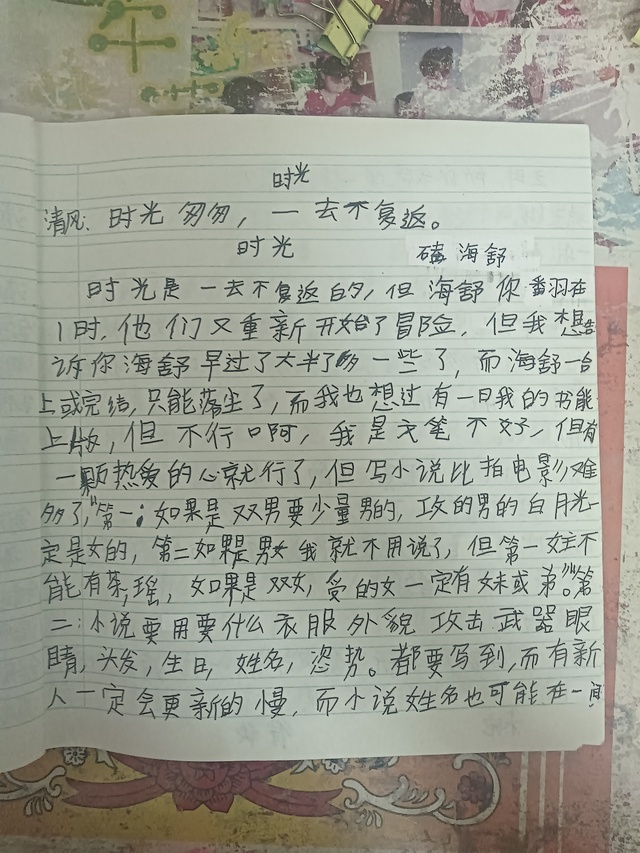 时光
清风：时光匆匆，一去不复返。
时光 磕海舒
时光是一去不复返的，但海舒你翻在
1时，他们又重新开始了冒险，但我想告
诉你海舒早过了大半了的一些了，而海舒一合
上或完结，只能落尘了，而我也想过有一日我的书能
上版，但不行啊，我是文笔不好，但有
一颗热爱的心就行了，但写小说比拍电影难
多了，"第一：如果是双男要少量男的，攻的男的白月光一
定是女的，第二如果是男女我就不用说了，但第一女主不
能有茶，瑶，如果是双女，受的女一定有妹或弟。"第
二：小说要用要什么衣服外貌攻击武器眼
睛，头发，生日，姓名，姿势。都要写到，而有新
人一定会更新的慢，而小说姓名也可能在一